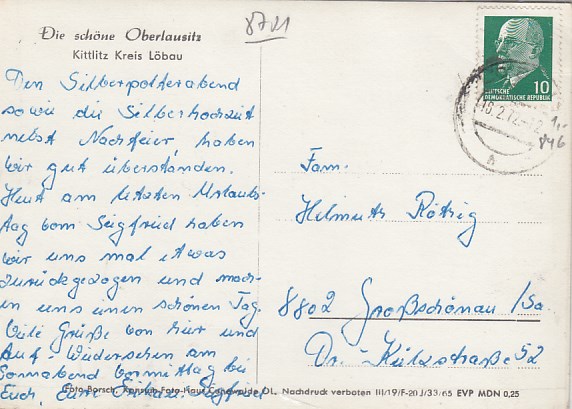 8721
Die schöne Oberlausitz
Kittlitz Kreis Löbau
Den Silberpolterabend
sowie die Silberhochzeit
nebst Nachfeier, haben
wir gut überstanden.
Heut am letzten Urlaubs-
tag vom Siegfried haben
wir uns mal etwas
zurückgezogen und mach-
en uns einen schönen Tag.
Viele Grüße von hier und
Auf-Wiedersehen am
Sonnabend vormittag bei
Euch, Eure Siegfried
10
DEUTSCHE
DEMOKRATISCHE REPUBLIK
16.2.72
1,-
846
Fam.
Helmuth Rötzig
8802 Großschönau/Sa.
Dr.-Külzstraße 52
Foto-Borsch, Foto-Haus OL. Nachdruck verboten III/19/F-20J/33/65 EVP MDN 0,25